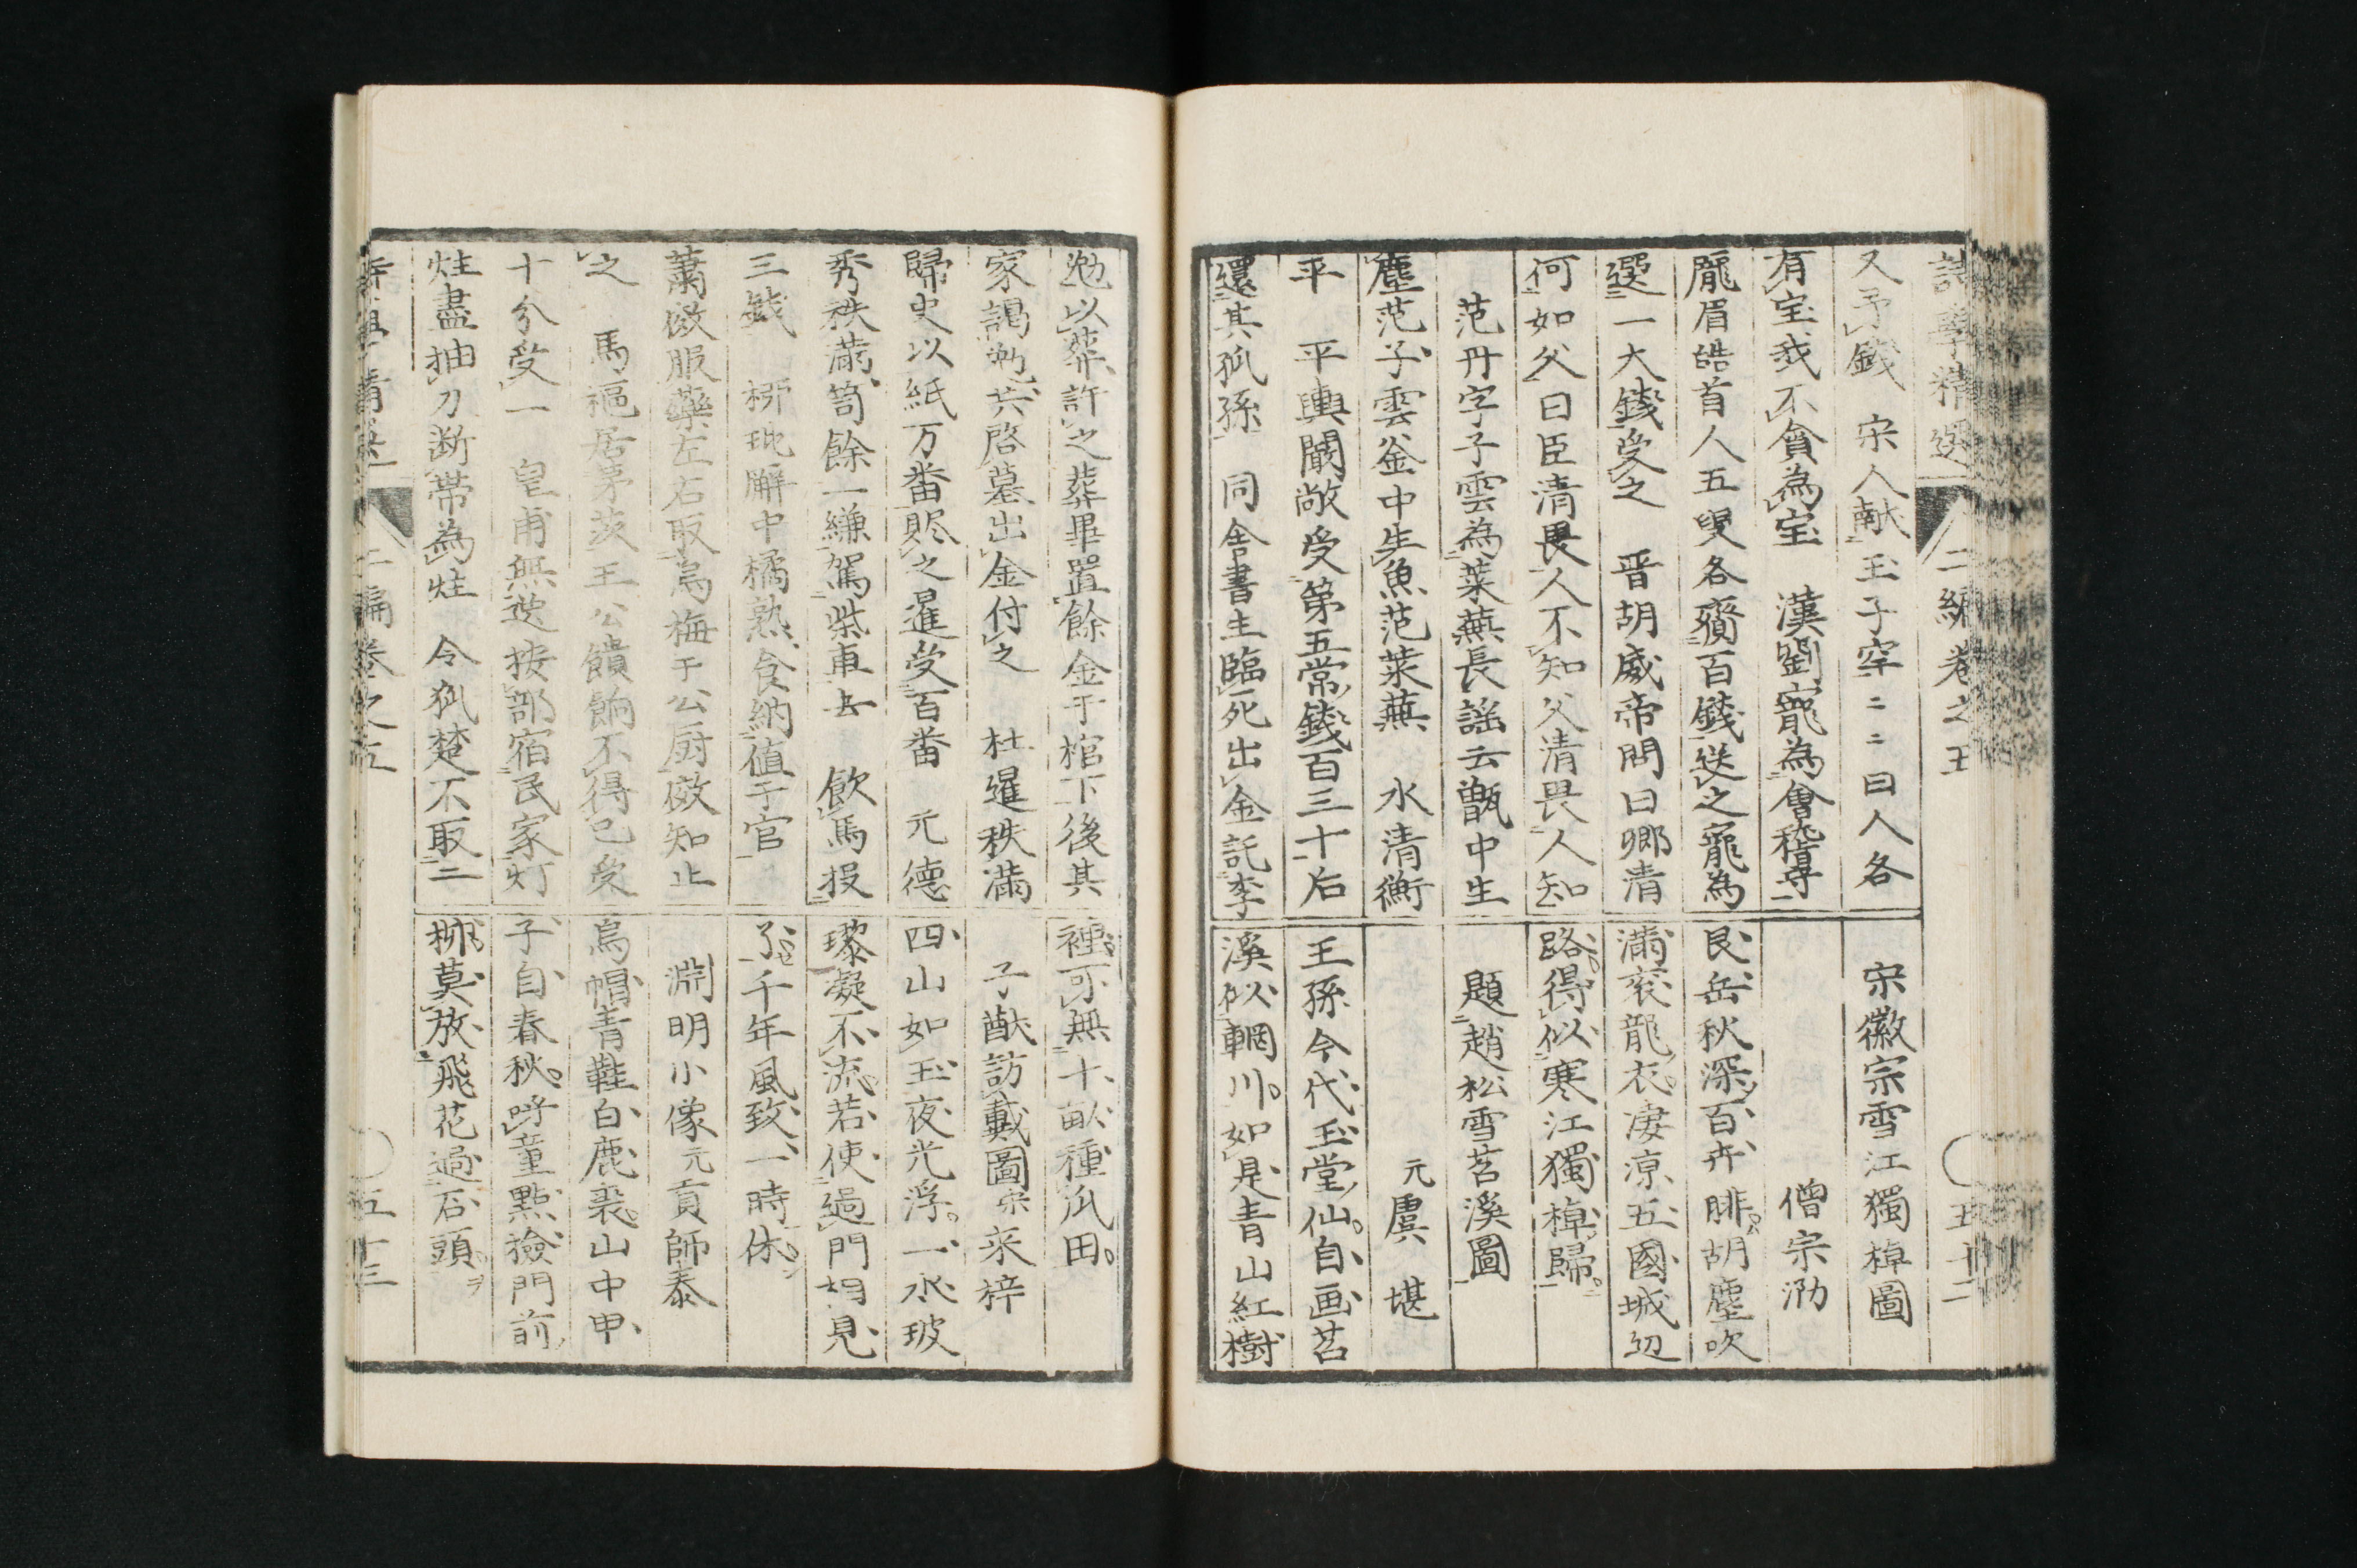 詩學精選 二編卷之五 五十二
又予錢 宋人献玉子罕〻〻曰人各
有宝我不貪為宝 漢劉寵為會稽尋
龐眉皓首人五叟各齎百錢送之寵為
選一大錢受之 晋胡威帝問曰卿清
何如父曰臣清畏人不知父清畏人知
范丹字子雲為萊蕪長謡云甑中生
塵范子雲釜中生魚范萊蕪 水清衡
平 平輿闞敞受第五常錢百三十后
還其孤孫 同舍書生臨死出金託李
宋徽宗雪江獨棹圖
僧宗泐
艮岳秋深百卉腓胡塵吹
満衮龍衣凄凉五國城辺
路得似寒江獨棹歸
題趙松雪苕溪圖
元虞 堪
王孫今代玉堂仙自画苕
溪似輞川如是青山紅樹
勉以葬許之葬畢置餘金于棺下後其
家謁勉共啓墓出金付之 杜暹秩満
歸吏以紙万番賍之暹受百番 元德
秀秩満笥餘一縑駕柴車去 飲馬投
三錢 栁玭廨中橘熟食納値于官
蕭儆服藥左右取烏梅于公厨儆知止
之 馬樞居茅茨王公饋餉不得已受
十分受一 皇甫無逸按部宿民家灯
炷盡抽刀断帯為炷 令狐楚不取二
裡可無十畝種瓜田
子猷訪戴圖 宋 来梓
四山如玉夜光浮一水玻
瓈凝不流若使過門相見
了千年風致一時休
淵明小像 元 貢師泰
烏帽青鞋白鹿裘山中甲
子自春秋呼童點撿門前
栁莫放飛花過石頭
二編卷之五 五十三